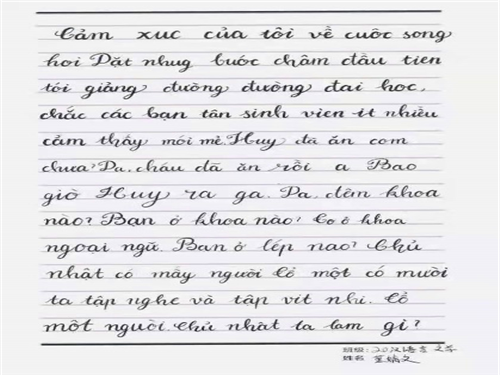 Cảm xuc của tôi về cuôc song
hoi Dặt nhug bước châm đầu tien
tói giảng đường đường đai hoc,
chắc các bạn tân sinh vien it nhiều
cảm thấy mói mẻ. Huy đã ăn com
chưa? Da, cháu đã ăn rồi a Bao
giờ Huy ra ga. Da, đêm khoa
nào? Bạn ở khoa nào? Co ô khoa
ngoại ngũ. Ban ở lép nao? Chủ
nhật có mấy người Cổ một có mười
ta tập nghe và tập vit nhi. Cổ
một người. Chủ nhat ta lam gì?
班级: 20汉语言文学
姓名